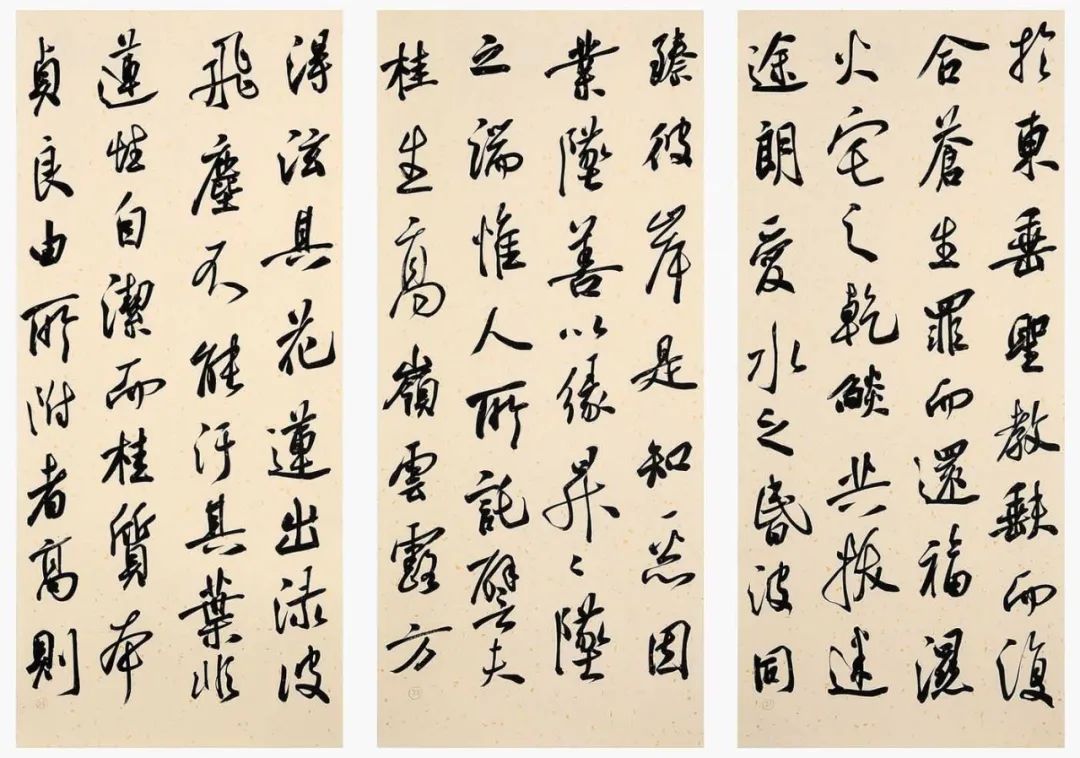 於東垂聖教缺而復
合蒼生罪而還福濕
火宅之乾燄共拔迷
途朗愛水之昏波同
臻彼岸是知惡因
業墜善以緣昇々墜
之端惟人所託譬夫
桂生高嶺雲露方
得泫其花蓮出淥波
飛塵不能汙其葉非
蓮性自潔而桂質本
貞良由所附者高則